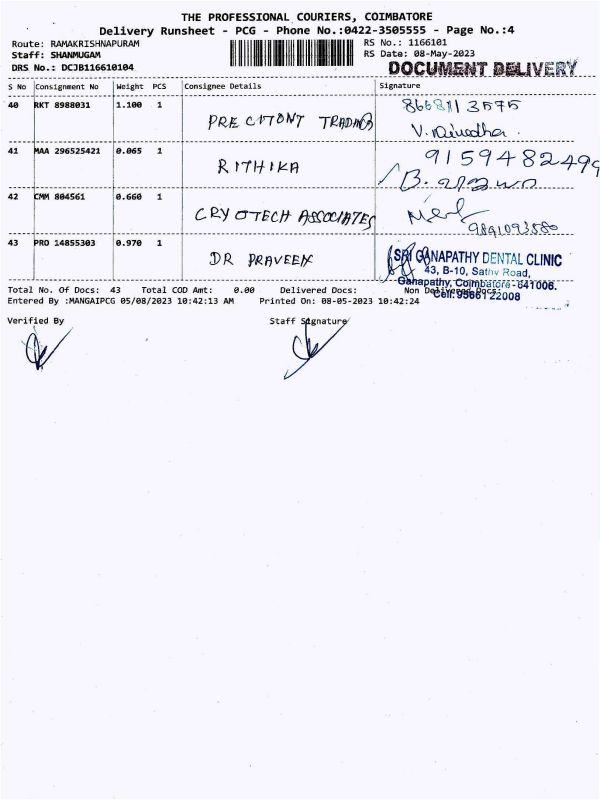 THE PROFESSIONAL COURIERS, COIMBATORE
Delivery Runsheet - PCG - Phone No.:0422-3505555 - Page No.:4
Route: RAMAKRISHNAPURAM RS No.: 1166101
Staff: SHANMUGAM RS Date: 08-May-2023
DRS No.: DCJB116610104 DOCUMENT DELIVERY
S No Consignment No Weight PCS Consignee Details Signature
40 RKT 8988031 1.100 1 TRADING
41 MAA 296525421 0.065 1 RITHIKA 9159482499
42 CMM 804561 0.660 1 CRYOTECH ASSOCIATES
43 PRO 14855303 0.970 1 DR PRAVEEN
SRI GANAPATHY DENTAL CLINIC
43, B-10, Sathy Road,
Ganapathy, Coimbatore - 641006.
Cell: 95661 22008
Total No. Of Docs: 43 Total COD Amt: 0.00 Delivered Docs: Non Delivered Docs:
Entered By :MANGAIPCG 05/08/2023 10:42:13 AM Printed On: 08-05-2023 10:42:24
Verified By Staff Signature